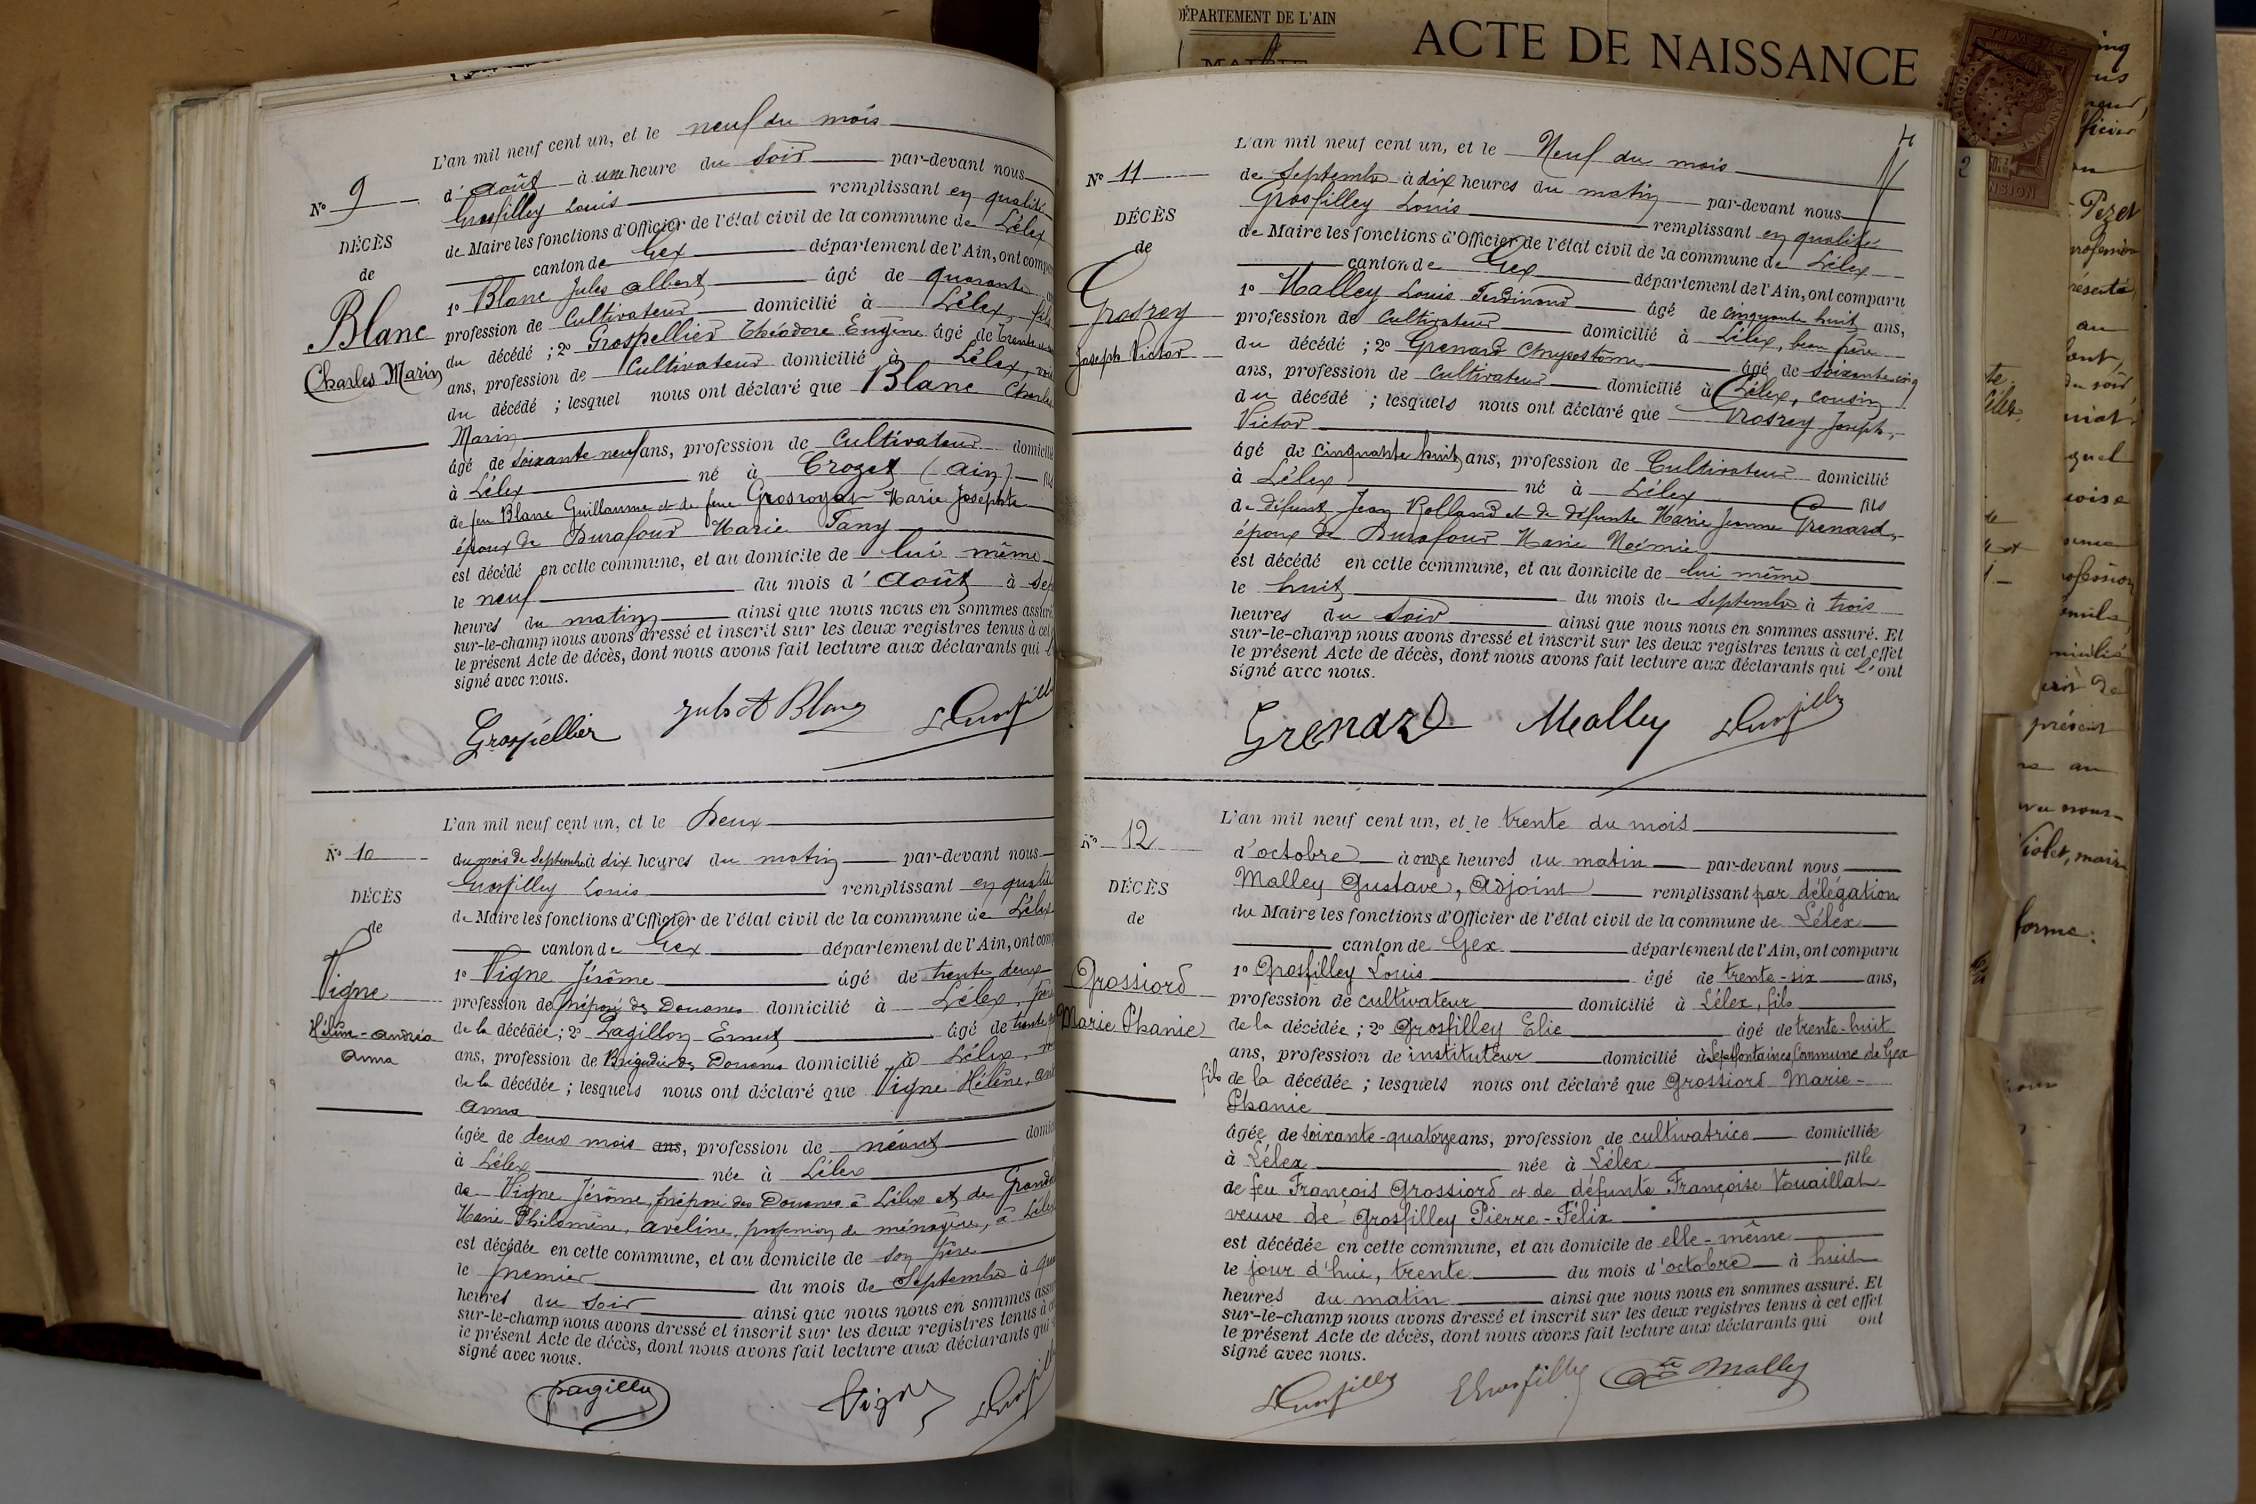 L'an mil neuf cent un, et le neuf du mois
N° 9
d'août à une heure du soir par-devant nous
Grosfilley Louis remplissant en qualité
DÉCÈS
de Maire les fonctions d'Officier de l'état civil de la commune de Lélex
de
canton de Gex département de l'Ain, ont
Blanc
1° Blanc Jules Albert âgé de quarante
Charles Marin
profession de Cultivateur domicilié à Lélex, fils
du décédé ; 2° Grospellier Théodore Eugène âgé de
ans, profession de Cultivateur domicilié à Lélex,
du décédé ; lesquel nous ont déclaré que Blanc Charles
Marin
âgé de soixante neuf ans, profession de Cultivateur
à Lélex né à Crozet (Ain)
de feu Blanc Guillaume et de feue Grosroyat Marie Josephte
époux de Durafour Marie Fany
est décédé en cette commune, et au domicile de lui même
le neuf du mois d'août à
heures du matin ainsi que nous nous en sommes
sur-le-champ nous avons dressé et inscrit sur les deux registres tenus à cet
le présent Acte de décès, dont nous avons fait lecture aux déclarants qui
signé avec nous.
Grospellier Jules A Blanc L Grosfilley
L'an mil neuf cent un, et le Deux
N° 10
du mois de Septembre à dix heures du matin par-devant nous
Grosfilley Louis remplissant en qualité
DÉCÈS
de Maire les fonctions d'Officier de l'état civil de la commune de Lélex
de
canton de Gex département de l'Ain, ont
Vigne
1° Vigne Jérôme âgé de trente deux
Hélène-Andréa
Anna
profession de préposé des Douanes domicilié à Lélex, père
de la décédée ; 2° Pagillon Ernest âgé de trente
ans, profession de Brigadier des Douanes domicilié à Lélex,
de la décédée ; lesquels nous ont déclaré que Vigne Hélène,
Anna
âgée de deux mois ans, profession de néant
à Lélex née à Lélex
de Vigne Jérôme, préposé des Douanes à Lélex et de
Marie Philomène, Aveline, profession de ménagère, à Lélex
est décédée en cette commune, et au domicile de son père
le premier du mois de Septembre à
heures du soir ainsi que nous nous en sommes
sur-le-champ nous avons dressé et inscrit sur les deux registres tenus à
le présent Acte de décès, dont nous avons fait lecture aux déclarants qui
signé avec nous.
Vigne L Grosfilley
DÉPARTEMENT DE L'AIN
MAIRIE
ACTE DE NAISSANCE
4
L'an mil neuf cent un, et le Neuf du mois
N° 11
de Septembre à dix heures du matin par-devant nous
Grosfilley Louis remplissant en qualité
DÉCÈS
de Maire les fonctions d'Officier de l'état civil de la commune de Lélex
de
canton de Gex département de l'Ain, ont comparu
Grosrey
1° Malley Louis Ferdinand âgé de cinquante huit ans,
Joseph Victor
profession de Cultivateur domicilié à Lélex, beau frère
du décédé ; 2° Grenard Chrysostôme âgé de soixante cinq
ans, profession de Cultivateur domicilié à Lélex, cousin
du décédé ; lesquels nous ont déclaré que Grosrey Joseph,
Victor
âgé de cinquante huit ans, profession de Cultivateur domicilié
à Lélex né à Lélex fils
de défunt Jean Rolland et de défunte Marie Jeanne Grenard,
époux de Durafour Marie Noémie
est décédé en cette commune, et au domicile de lui même
le huit du mois de Septembre à trois
heures du soir ainsi que nous nous en sommes assuré. Et
sur-le-champ nous avons dressé et inscrit sur les deux registres tenus à cet effet
le présent Acte de décès, dont nous avons fait lecture aux déclarants qui l'ont
signé avec nous.
Grenard Malley L Grosfilley
L'an mil neuf cent un, et le trente du mois
N° 12
d'octobre à onze heures du matin par-devant nous
Malley Gustave, Adjoint remplissant par délégation
DÉCÈS
du Maire les fonctions d'Officier de l'état civil de la commune de Lélex
de
canton de Gex département de l'Ain, ont comparu
Grossiord
1° Grosfilley Louis âgé de trente-six ans,
Marie Phanie
profession de cultivateur domicilié à Lélex, fils
de la décédée ; 2° Grosfilley Elie âgé de trente-huit
ans, profession de instituteur domicilié à Septfontaines, Commune de Gex
fils de la décédée ; lesquels nous ont déclaré que Grossiord Marie-
Phanie
âgée de soixante-quatorze ans, profession de cultivatrice domiciliée
à Lélex née à Lélex fille
de feu François Grossiord et de défunte Françoise Vuaillat
veuve de Grosfilley Pierre-Félix
est décédée en cette commune, et au domicile de elle-même
le jour d'hui, trente du mois d'octobre à huit
heures du matin ainsi que nous nous en sommes assuré. Et
sur-le-champ nous avons dressé et inscrit sur les deux registres tenus à cet effet
le présent Acte de décès, dont nous avons fait lecture aux déclarants qui ont
signé avec nous.
L Grosfilley E Grosfilley Malley